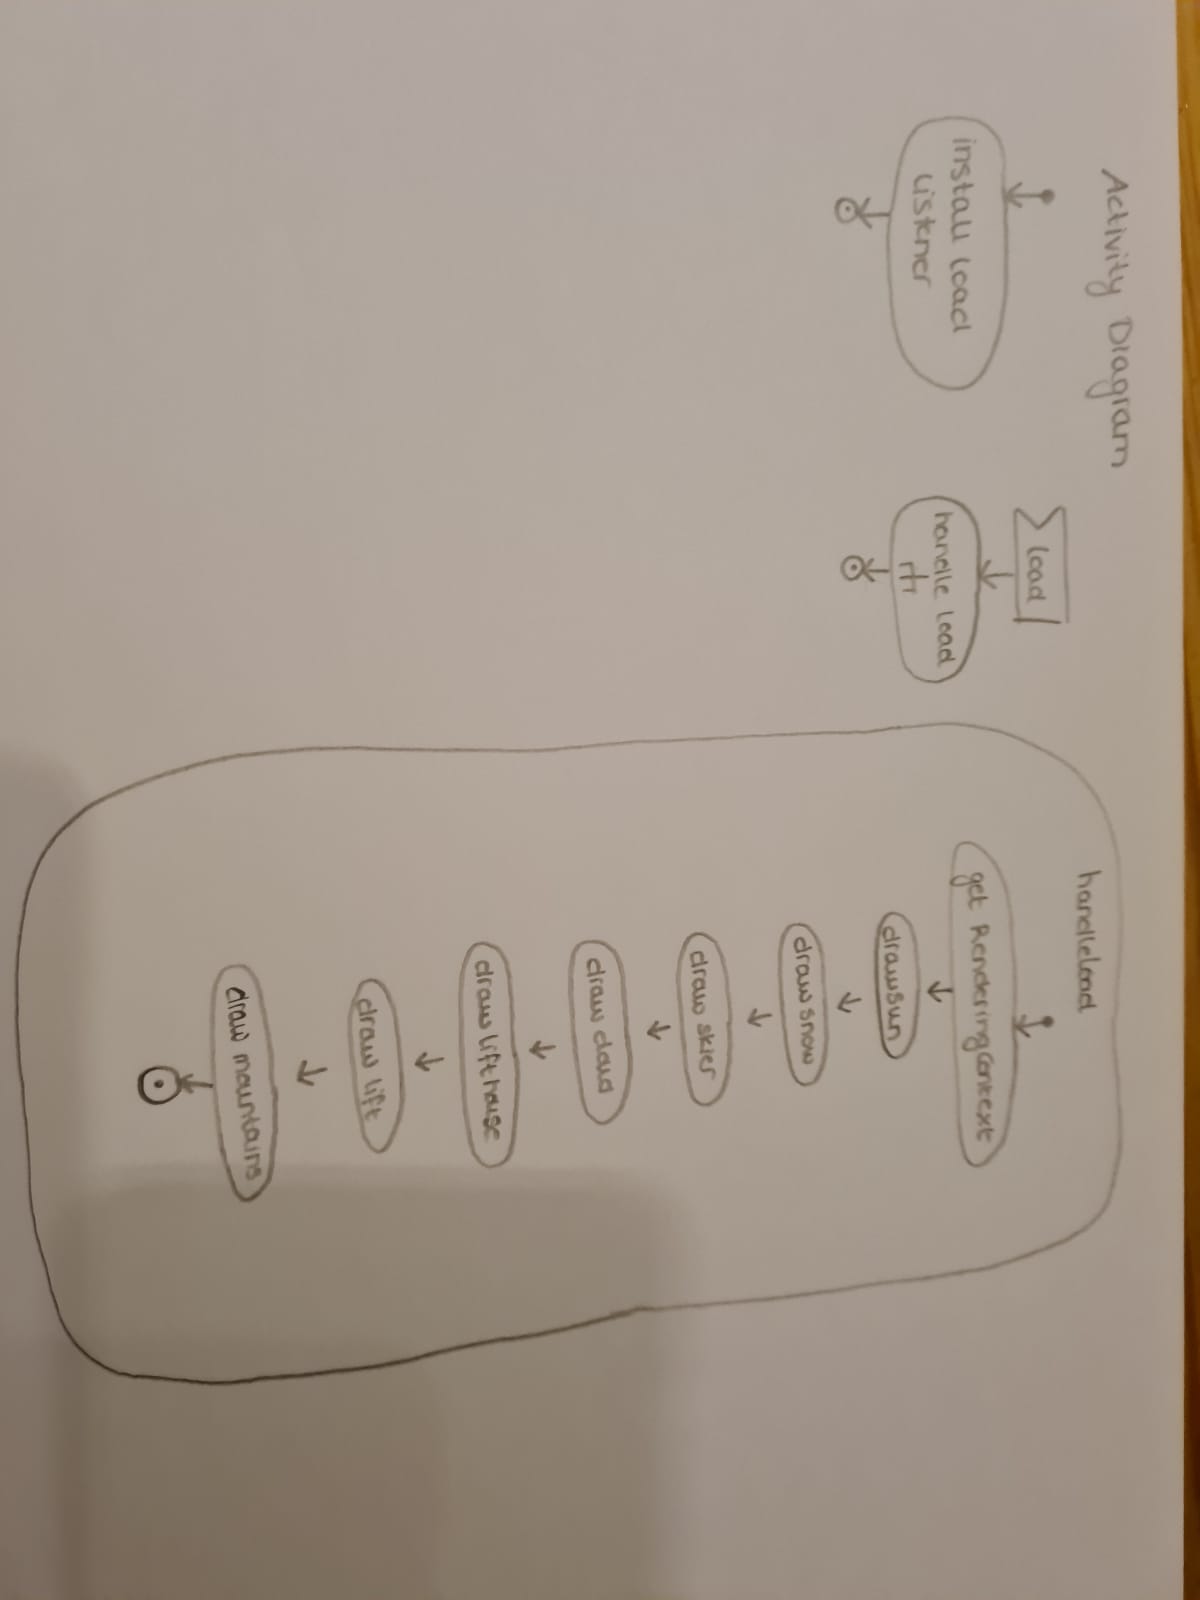 Activity Diagram
install load
Listener
load
handle load
handleLoad
get RenderingContext
drawsun
draw snow
draw skier
draw cloud
draw lift house
draw lift
draw mountains